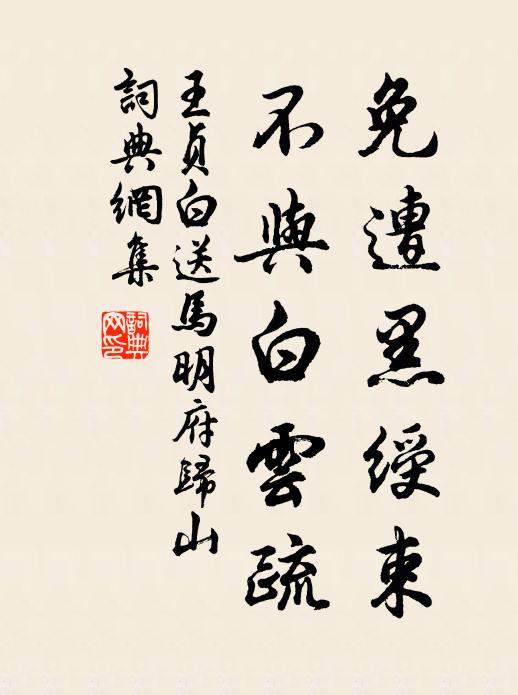 免遭黑綬束
不與白雲疏
王貞白送馬明府歸山
詞典網集
詞典網印